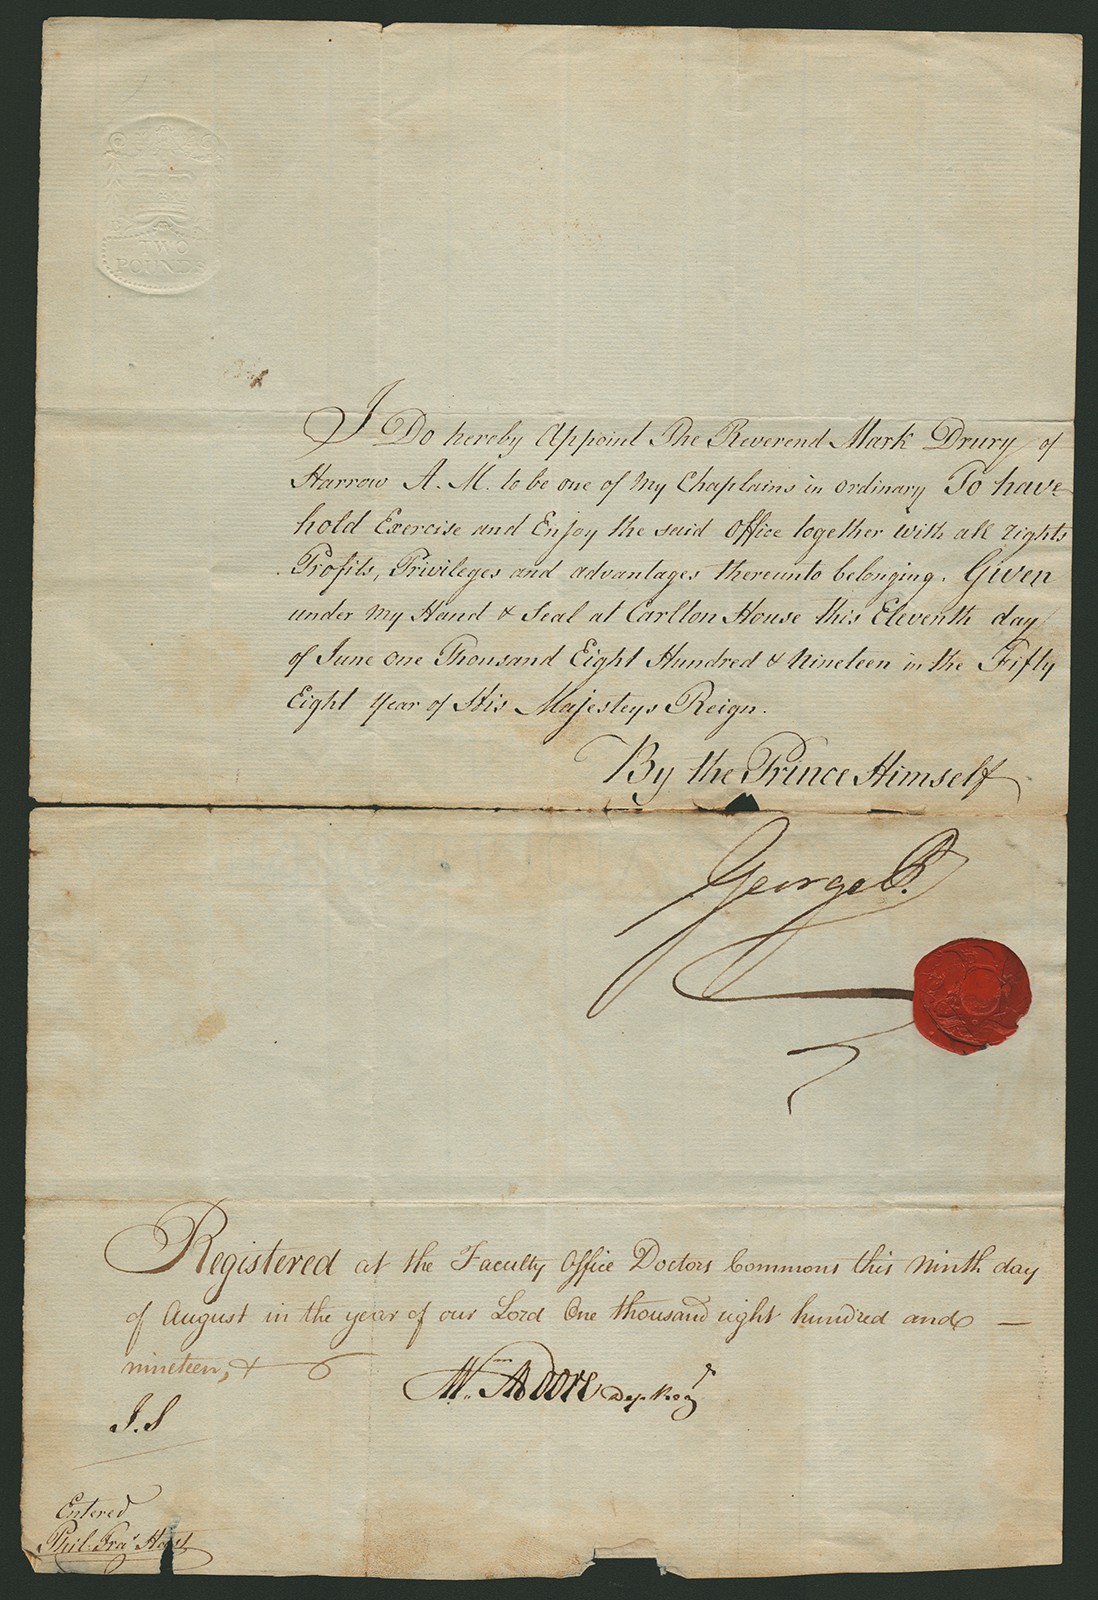 TWO
POUNDS
I Do hereby Appoint The Reverend Mark Drury of
Harrow A. M. to be one of My Chaplains in ordinary To have
hold Exercise and Enjoy the said Office together with all rights
Profits, Privileges and advantages thereunto belonging. Given
under my Hand & Seal at Carlton House this Eleventh day
of June One Thousand Eight Hundred & Nineteen in the Fifty
Eight Year of His Majestys Reign.
By the Prince Himself
George P.
Registered at the Faculty Office Doctors Commons this Ninth day
of August in the year of our Lord One thousand eight hundred and —
nineteen, &
Wm. Moore Dep. Regr
J.S
Entered
Phil. Fras